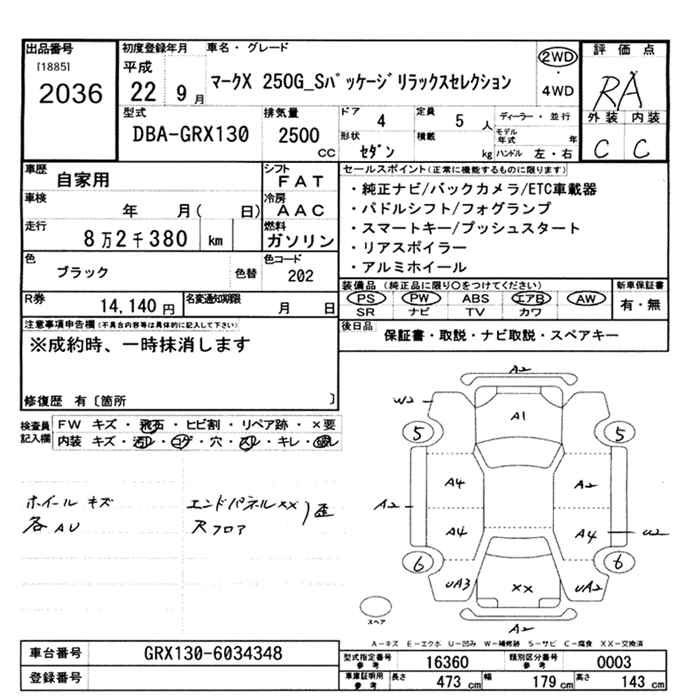 出品番号 初度登録年月 車名・グレード 評価点
[1885] 平成 2WD
2036 22 9月 マークX 250G_Sパッケージリラックスセレクション 4WD RA
型式 排気量 ドア 4 定員 5人 ディーラー・並行 外装 内装
DBA-GRX130 2500 cc 形状 セダン 積載 kg モデル年式 年 ハンドル 左・右 C C
車歴 自家用 シフト FAT セールスポイント(正常に機能するものに限ります)
車検 年 月( 日) 冷房 AAC ・純正ナビ/バックカメラ/ETC車載器
・パドルシフト/フォグランプ
走行 8万2千380 km 燃料 ガソリン ・スマートキー/プッシュスタート
・リアスポイラー
色 ブラック 色替 色コード 202 ・アルミホイール
装備品(純正品に限り○をつけてください) 新車保証書
R券 14,140円 名変通知期限 月 日 PS PW ABS エアB AW 有・無
SR ナビ TV カワ
注意事項申告欄(不具合内容等は具体的に記入して下さい) 後日品 保証書・取説・ナビ取説・スペアキー
※成約時、一時抹消します
修復歴 有〔箇所 〕
検査員記入欄 FW キズ・飛石・ヒビ割・リペア跡・×要
内装 キズ・汚レ・コゲ・穴・スレ・キレ・
A2
W2 A1
5 5
A4 A2
ホイール キズ エンドパネルXX A2
各AU Rフロア 歪 A4 A4 U2
6 6
UA3 XX UA2
スペア A2
A-キズ E-エクボ U-凹み W-補修跡 S-サビ C-腐食 XX-交換済
車台番号 GRX130-6034348 型式指定番号 参考 16360 類別区分番号 参考 0003
登録番号 車庫証明用 参考 長さ 473 cm 幅 179 cm 高さ 143 cm